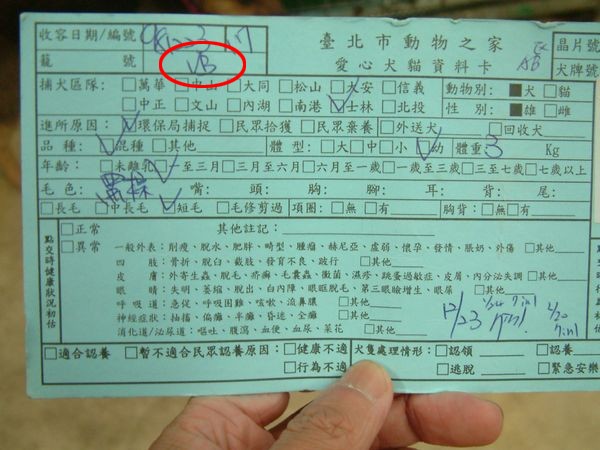 收容日期/編號 臺北市動物之家 晶片號
籠號 愛心犬貓資料卡 犬牌號
捕犬區隊：□萬華□中山□大同□松山□大安□信義 動物別：■犬□貓
□中正□文山□內湖□南港□士林□北投 性別：■雄□雌
進所原因：□環保局捕捉□民眾拾獲□民眾棄養□外送犬□回收犬
品種：□混種□其他 體型：□大□中□小□幼 體重：3 Kg
年齡：□未離乳□一至三月□三月至六月□六月至一歲□一歲至三歲□三至七歲□七歲以上
毛色： 嘴： 頭： 胸： 腳： 耳： 背： 尾：
□長毛□中長毛□短毛□毛修剪過 項圈：□無□有 胸背：□無□有
點交時健康狀況初估
□正常 其他註記：
□異常 一般外表：削瘦、脫水、肥胖、畸型、腫瘤、赫尼亞、虛弱、懷孕、發情、脹奶、外傷□其他
四肢：骨折、脫臼、截肢、發育不良、跛行□其他
皮膚：外寄生蟲、脫毛、疥癬、毛囊蟲、黴菌、濕疹、跳蚤過敏症、皮屑、內分泌失調□其他
眼睛：失明、萎縮、脫出、白內障、眼眶脫毛、第三眼瞼增生、眼屎□其他
呼吸道：急促、呼吸困難、咳嗽、流鼻膿□其他
神經症狀：抽搐、偏癱、半癱、昏迷、全癱□其他
消化道/泌尿道：嘔吐、腹瀉、血便、血尿、菜花□其他
12/23 7in1
□適合認養□暫不適合民眾認養原因：□健康不適 犬隻處理情形：□認領□認養
□行為不適 □逃脫□緊急安樂